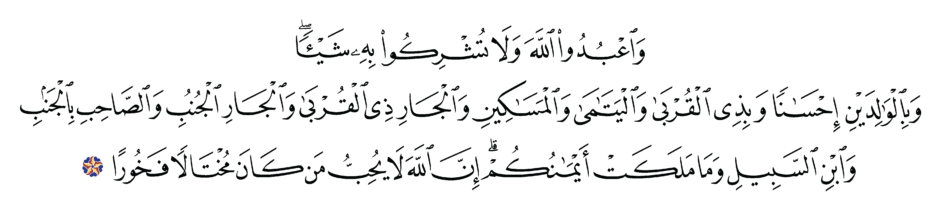 وَٱعْبُدُوا۟ ٱللَّهَ وَلَا تُشْرِكُوا۟ بِهِۦ شَيْـًٔاۖ
وَبِٱلْوَٰلِدَيْنِ إِحْسَٰنًا وَبِذِى ٱلْقُرْبَىٰ وَٱلْيَتَٰمَىٰ وَٱلْمَسَٰكِينِ وَٱلْجَارِ ذِى ٱلْقُرْبَىٰ وَٱلْجَارِ ٱلْجُنُبِ وَٱلصَّاحِبِ بِٱلْجَنۢبِ
وَٱبْنِ ٱلسَّبِيلِ وَمَا مَلَكَتْ أَيْمَٰنُكُمْۗ إِنَّ ٱللَّهَ لَا يُحِبُّ مَن كَانَ مُخْتَالًا فَخُورًا